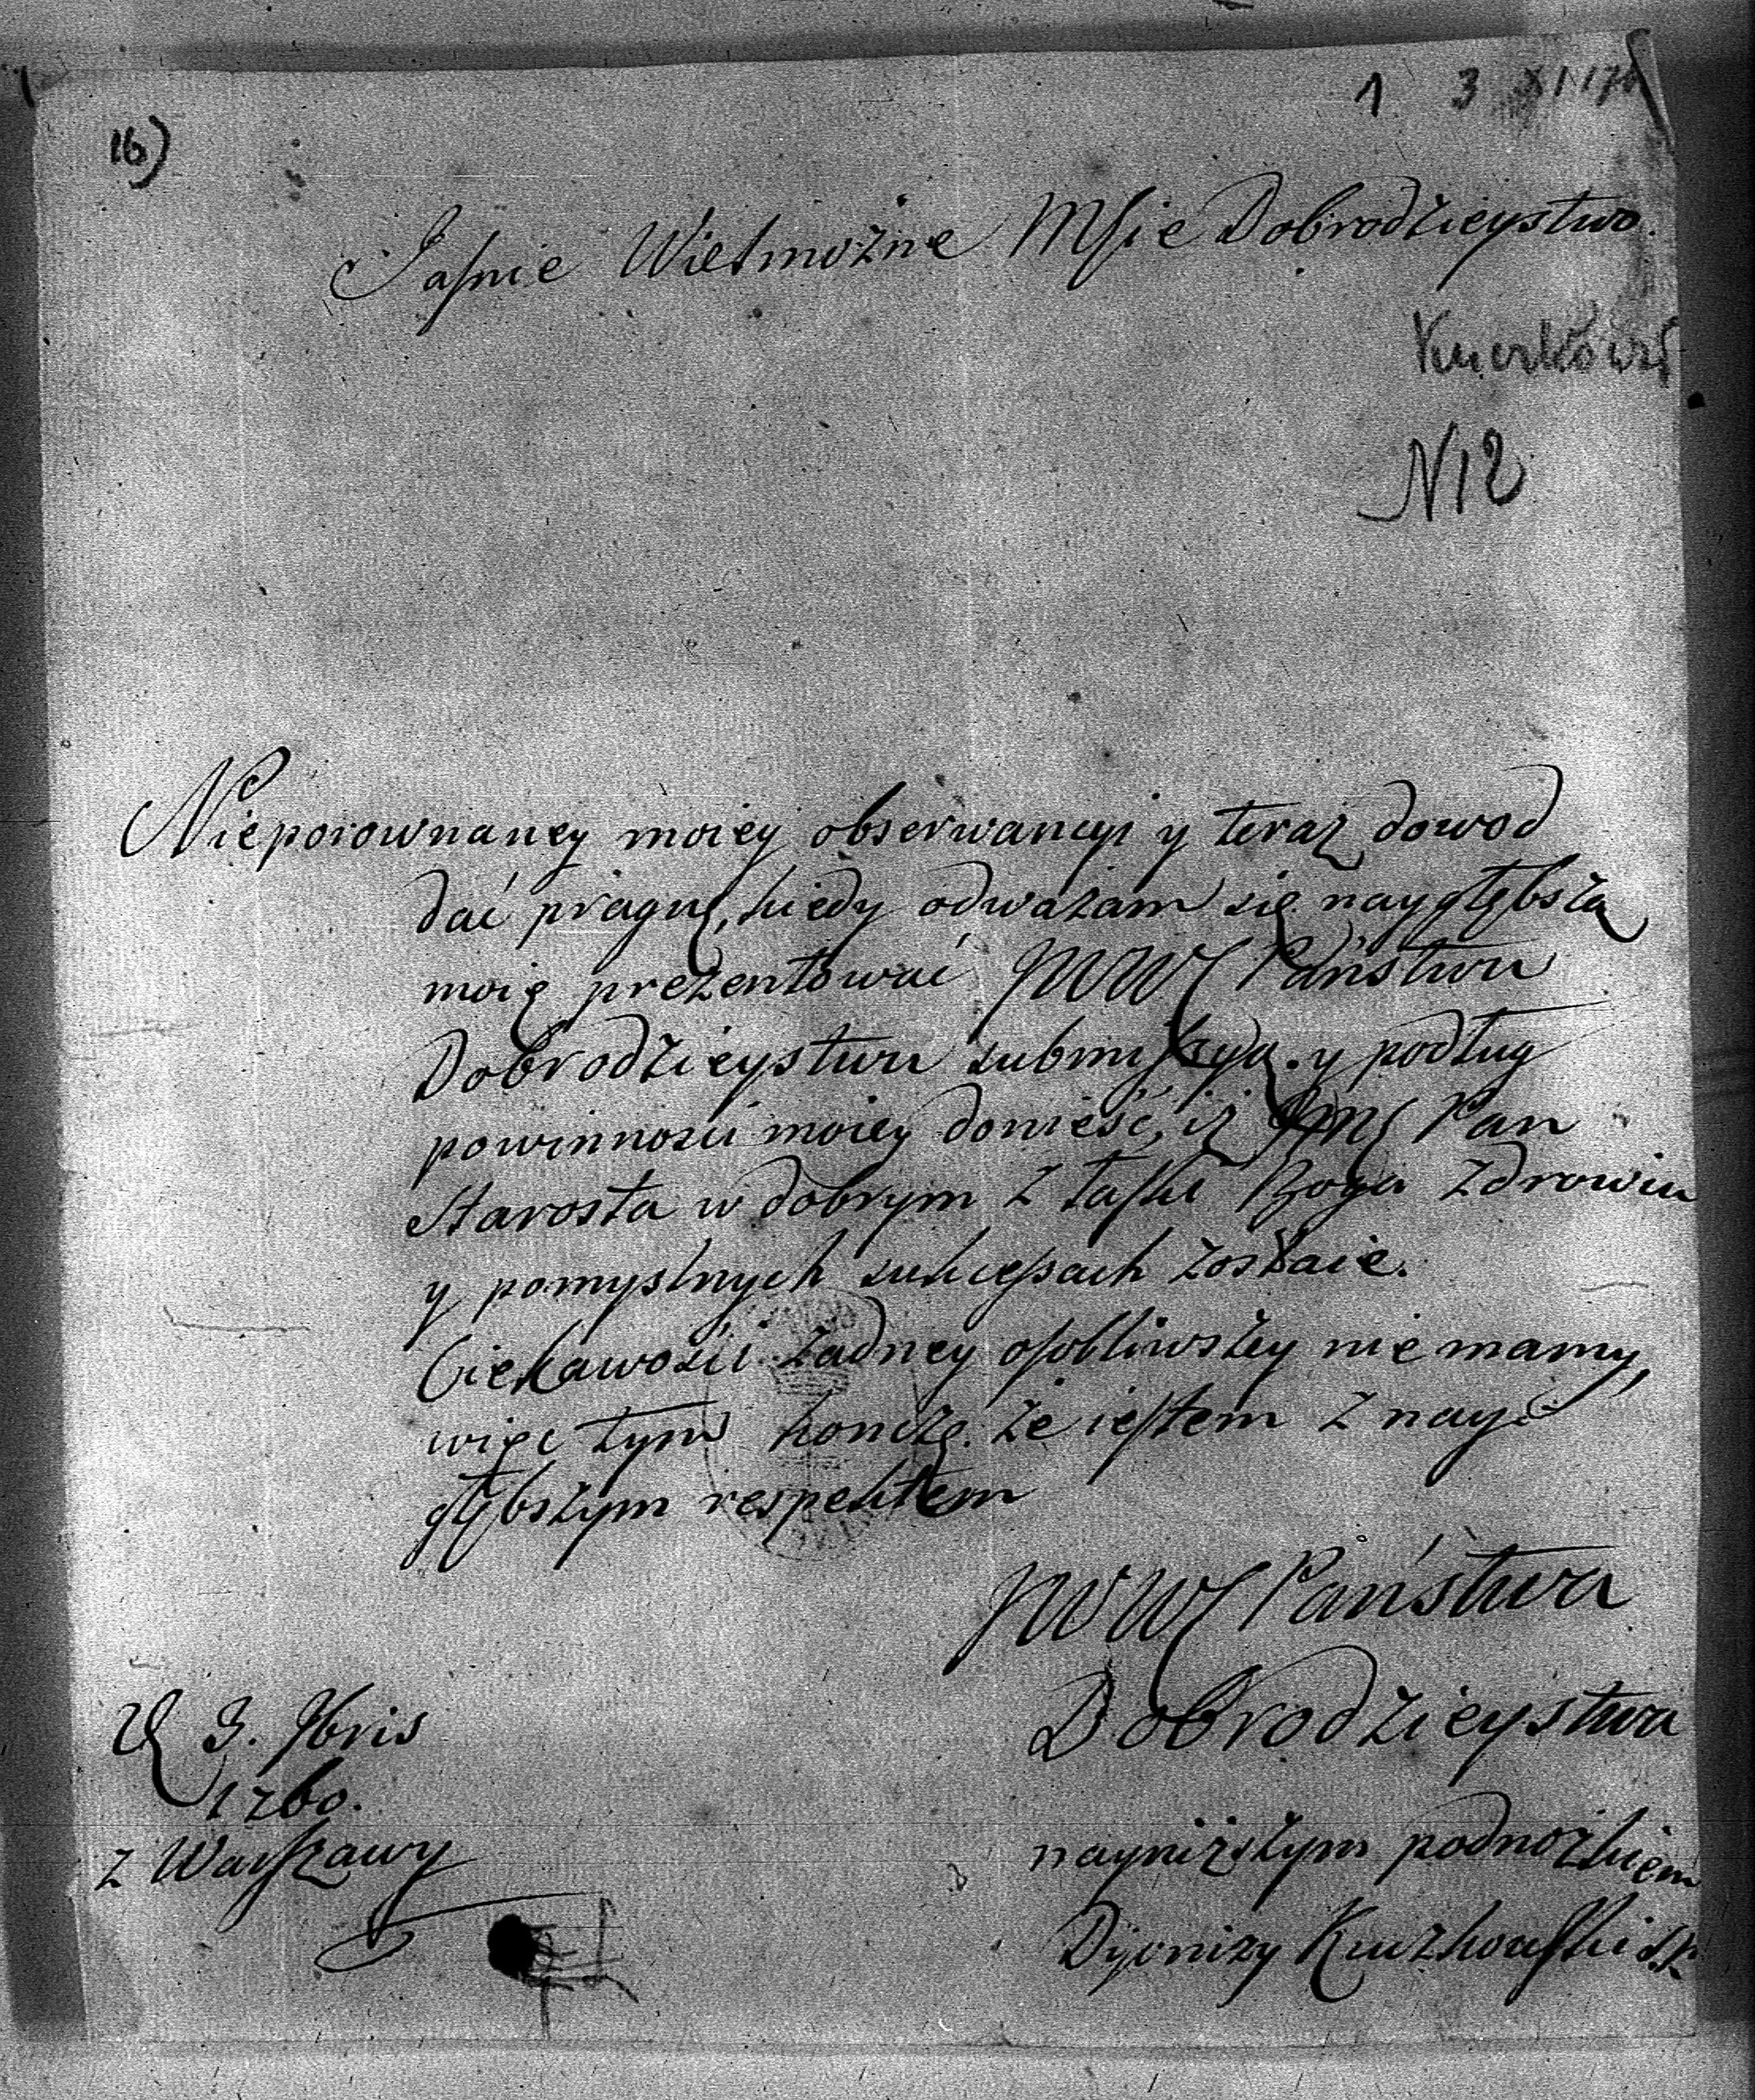 1 3 XI 17
16)
Jaśnie Wielmożne Mſcie Dobrodzieystwo.
N12
Nieporownaney moiey obserwancyi y teraz dowod
dać pragnę, kiedy odważam się naygłębszą
moię prezentować JWW Państwu
Dobrodzieystwu submiſsyą. y podług
powinności moiey donieść, iż Jmć Pan
Starosta w dobrym z łaſki Boga zdrowiu
y pomyslnych sukceſsach zostaie.
Ciekawości żadney oſobliwszey nie mamy,
więc tym konczę. że ieſtem z nay-
głębszym respektem
JWW Państwa
Dobrodzieystwa
D 3. 9bris
1760.
z Warſzawy
naynizszym podnożkiem
Dyonizy Kuczkowſki